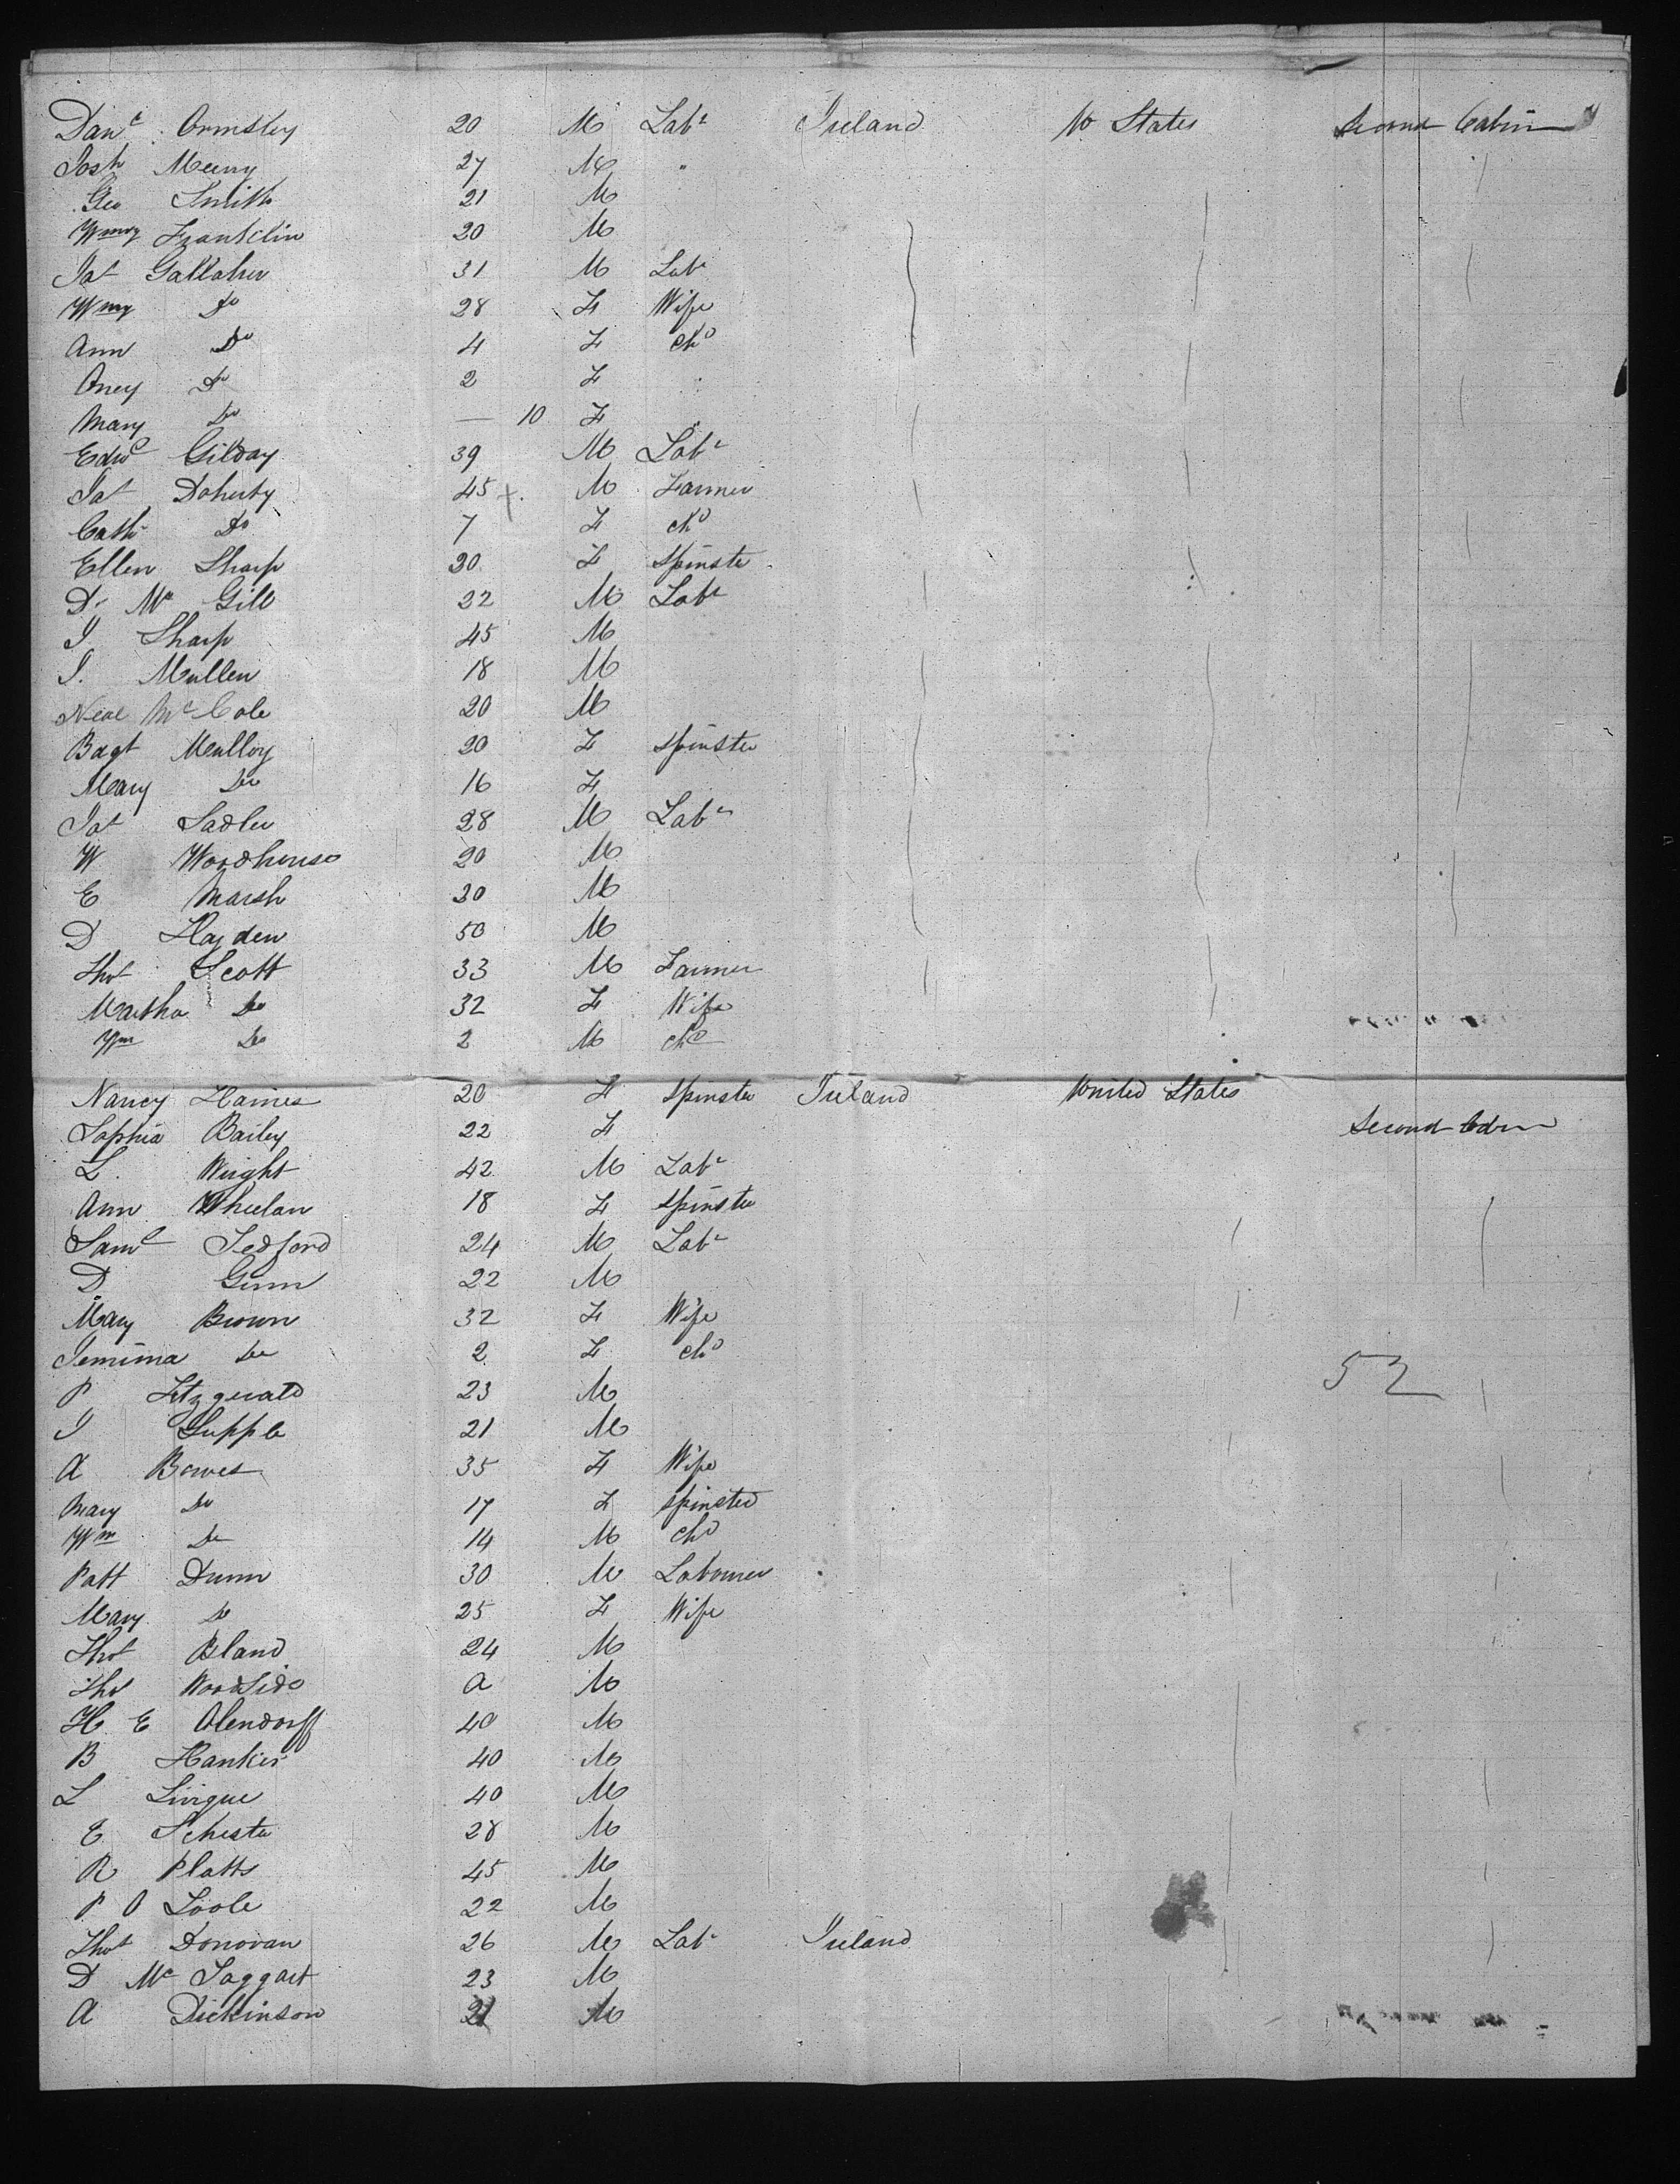 Danl Ormsby 20 M Labr Ireland U States Second Cabin
Josh Meeny 27 M "
Geo Smith 21 M
Franklin 20 M
Jas Gallaher 31 M Labr
Do 28 F Wife
Ann Do 4 F Chd
Oney Do 2 F
Mary Do — 10 F "
Edwd Gilday 39 M Labr
Jas Doherty 45 M Farmer
Cath Do 7 F Chd
Ellen Sharp 30 F Spinster
D. Mc Gill 22 M Labr
J Sharp 45 M
J. Mullen 18 M
Neal Mc Cole 20 M
Bdgt Mulloy 20 F Spinster
Mary Do 16 F
Jas Sadler 28 M Labr
W Woodhouse 20 M
E Marsh 30 M
D Hayden 50 M
Thos Scott 33 M Farmer
Martha Do 32 F Wife
Wm Do 2 M Chd
Nancy Haines 20 F Spinster Ireland United States
Sophia Bailey 22 F Second Cabin
L. Wright 42 M Labr
Ann Wheelan 18 F Spinster
Saml Tedford 24 M Labr
D Gunn 22 M
Mary Brown 32 F Wife
Jemima Do 2 F Chd 52
P Fitzgerald 23 M
J Supple 21 M
A Bowes 35 F Wife
Mary Do 17 F Spinster
Wm Do 14 M Chd
Patt Dunn 30 M Labourer
Mary Do 25 F Wife
Thos Bland 24 M
Thos Woodside a M
H E Olendorff 40 M
B Hankis 40 M
L Livigue 40 M
E Schester 28 M
R Platts 45 M
P O Toole 22 M
Thos Donovan 26 M Labr Ireland
D Mc Taggart 23 M
A Dickinson 21 M